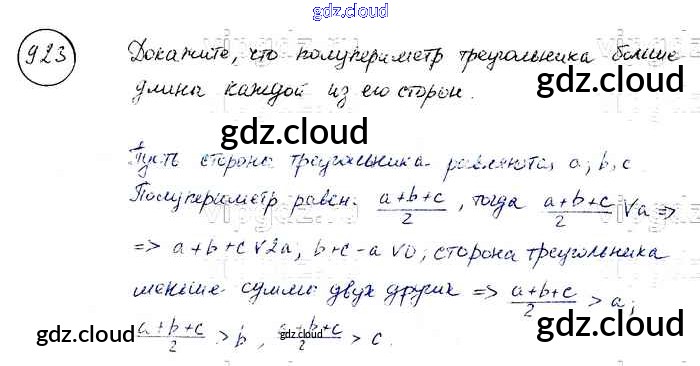 gdz.cloud
923
Докажите, что полупериметр треугольника больше
длины каждой из его сторон.
gdz.cloud
gdz.cloud
Пусть стороны треугольника равняются, a, b, c
Полупериметр равен. a+b+c/2, тогда a+b+c/2 ∨ a ⇒
⇒ a+b+c ∨ 2a, b+c-a ∨ 0; сторона треугольника
меньше суммы двух других ⇒ a+b+c/2 > a;
a+b+c/2 > b, a+b+c/2 > c.
gdz.cloud
gdz.cloud
gdz.cloud